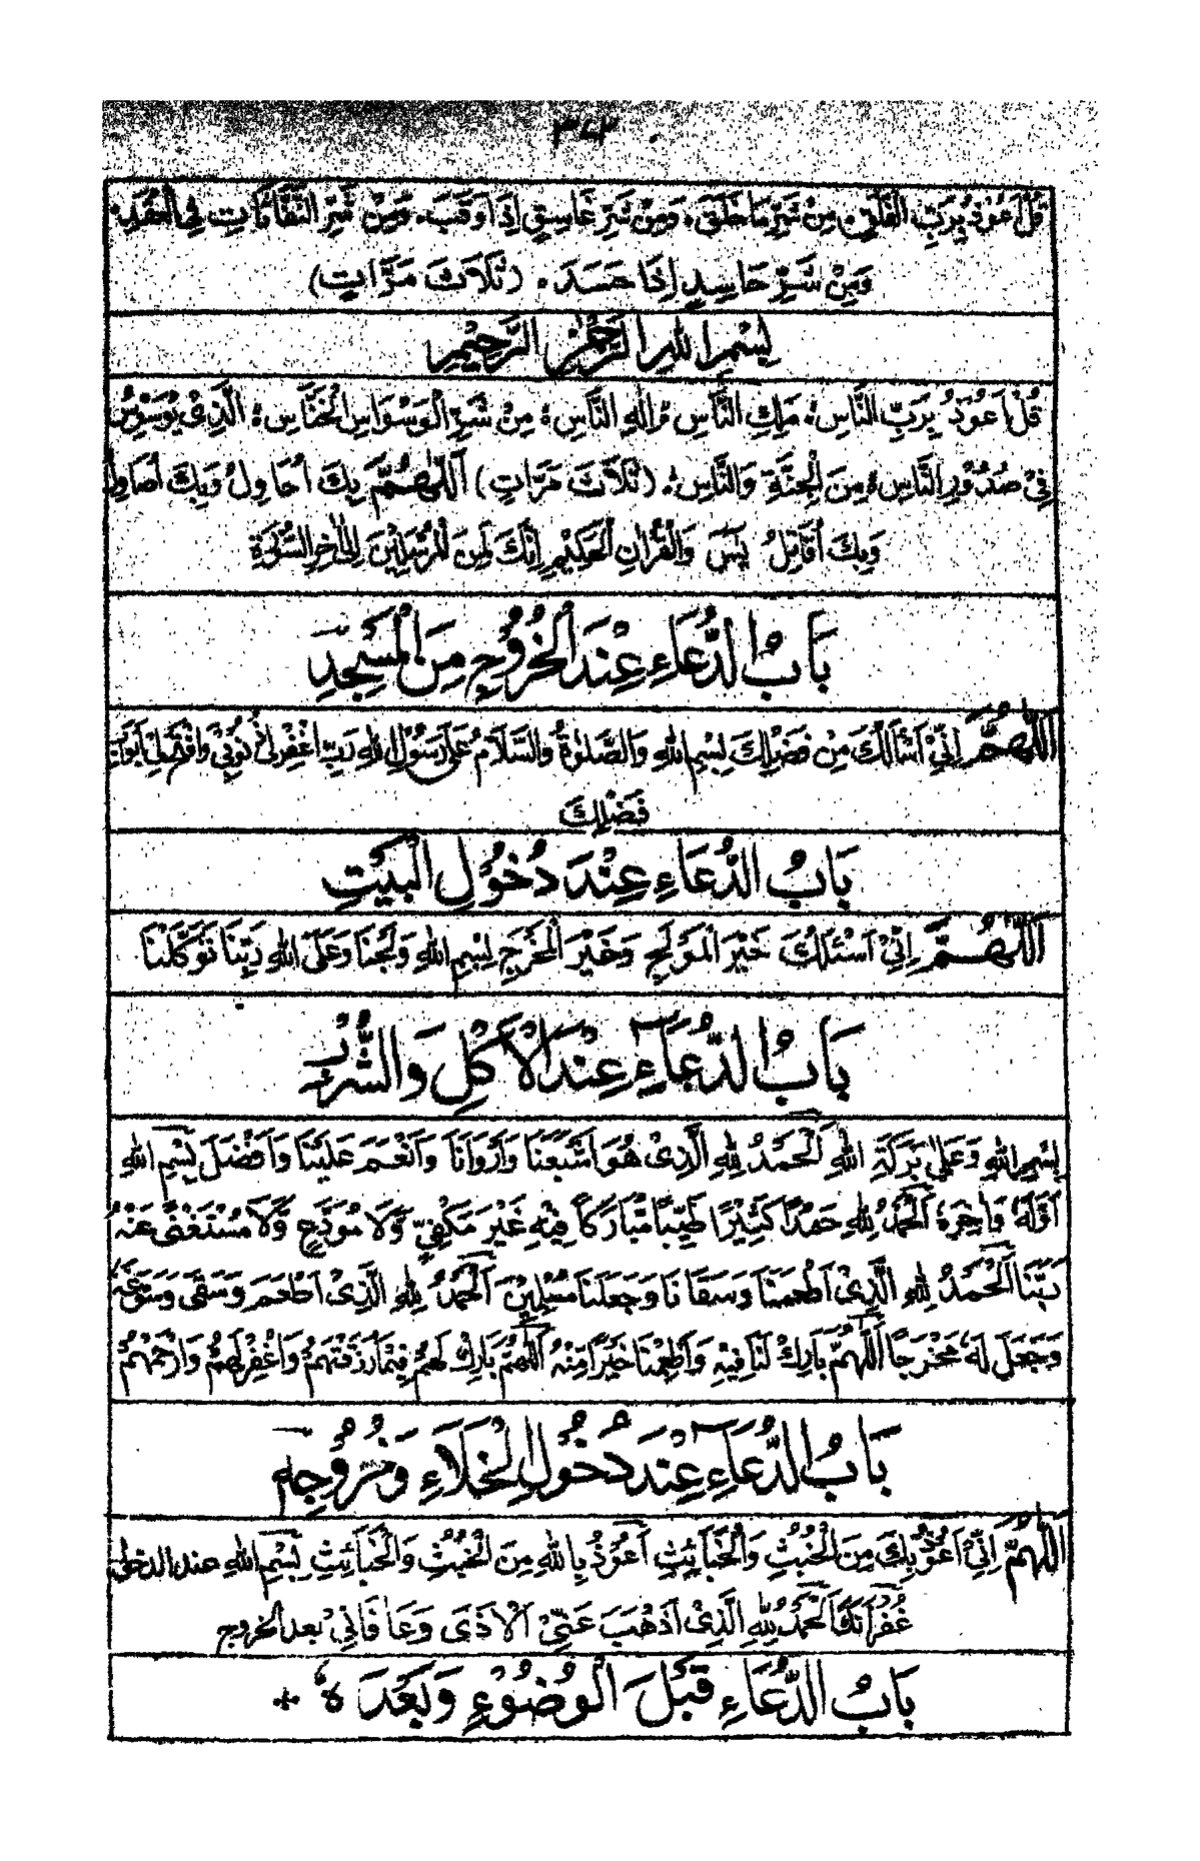 ٣٤٣
قُلْ اَعُوْذُ بِرَبِّ الْفَلَقِ ۰ مِنْ شَرِّ مَا خَلَقَ ۰ وَمِنْ شَرِّ غَاسِقٍ اِذَا وَقَبَ ۰ وَمِنْ شَرِّ النَّفّٰثٰتِ فِي الْعُقَدِ ۰
وَمِنْ شَرِّ حَاسِدٍ اِذَا حَسَدَ ۰ (ثَلَاثَ مَرَّاتٍ)
بِسْمِ اللهِ الرَّحْمٰنِ الرَّحِيْمِ
قُلْ اَعُوْذُ بِرَبِّ النَّاسِ ۰ مَلِكِ النَّاسِ ۰ اِلٰهِ النَّاسِ ۰ مِنْ شَرِّ الْوَسْوَاسِ الْخَنَّاسِ ۰ الَّذِىْ يُوَسْوِسُ
فِىْ صُدُوْرِ النَّاسِ ۰ مِنَ الْجِنَّةِ وَالنَّاسِ ۰ (ثَلَاثَ مَرَّاتٍ) اَللّٰهُمَّ بِكَ اُحَاوِلُ وَبِكَ اُصَاوِلُ
وَبِكَ اُقَاتِلُ يٰسٓ وَالْقُرْاٰنِ الْحَكِيْمِ اِنَّكَ لَمِنَ الْمُرْسَلِيْنَ اِلٰى اٰخِرِ السُّوْرَةِ
بَابُ الدُّعَاءِ عِنْدَ الْخُرُوْجِ مِنَ الْمَسْجِدِ
اَللّٰهُمَّ اِنِّىْ اَسْاَلُكَ مِنْ فَضْلِكَ بِسْمِ اللهِ وَالصَّلٰوةُ وَالسَّلَامُ عَلٰى رَسُوْلِ اللهِ رَبِّ اغْفِرْلِىْ ذُنُوْبِىْ وَافْتَحْ لِىْ اَبْوَابَ
فَضْلِكَ
بَابُ الدُّعَاءِ عِنْدَ دُخُوْلِ الْبَيْتِ
اَللّٰهُمَّ اِنِّىْ اَسْئَلُكَ خَيْرَ الْمَوْلَجِ وَخَيْرَ الْمَخْرَجِ بِسْمِ اللهِ وَلَجْنَا وَعَلَى اللهِ رَبِّنَا تَوَكَّلْنَا
بَابُ الدُّعَآءِ عِنْدَ الْاَكْلِ وَالشُّرْبِ
بِسْمِ اللهِ وَعَلٰى بَرَكَةِ اللهِ اَلْحَمْدُ لِلّٰهِ الَّذِىْ هُوَ اَشْبَعَنَا وَاَرْوَانَا وَاَنْعَمَ عَلَيْنَا وَاَفْضَلَ بِسْمِ اللهِ
اَوَّلَهٗ وَاٰخِرَهٗ اَلْحَمْدُ لِلّٰهِ حَمْدًا كَثِيْرًا طَيِّبًا مُّبَارَكًا فِيْهِ غَيْرَ مَكْفِيٍّ وَّلَا مُوَدَّعٍ وَّلَا مُسْتَغْنًى عَنْهُ
رَبَّنَا اَلْحَمْدُ لِلّٰهِ الَّذِىْ اَطْعَمَنَا وَسَقَانَا وَجَعَلَنَا مُسْلِمِيْنَ اَلْحَمْدُ لِلّٰهِ الَّذِىْ اَطْعَمَ وَسَقٰى وَسَوَّغَهٗ
وَجَعَلَ لَهٗ مَخْرَجًا اَللّٰهُمَّ بَارِكْ لَنَا فِيْهِ وَاَطْعِمْنَا خَيْرًا مِّنْهُ اَللّٰهُمَّ بَارِكْ لَهُمْ فِيْمَا رَزَقْتَهُمْ وَاغْفِرْ لَهُمْ وَارْحَمْهُمْ
بَابُ الدُّعَآءِ عِنْدَ دُخُوْلِ الْخَلَاءِ وَخُرُوْجِهٖ
اَللّٰهُمَّ اِنِّىْ اَعُوْذُ بِكَ مِنَ الْخُبُثِ وَالْخَبَآئِثِ اَعُوْذُ بِاللهِ مِنَ الْخُبُثِ وَالْخَبَآئِثِ بِسْمِ اللهِ عند الدخول
غُفْرَانَكَ اَلْحَمْدُ لِلّٰهِ الَّذِىْ اَذْهَبَ عَنِّىْ الْاَذٰى وَعَافَانِىْ بعد الخروج
بَابُ الدُّعَاءِ قَبْلَ الْوُضُوْءِ وَبَعْدَهٗ +